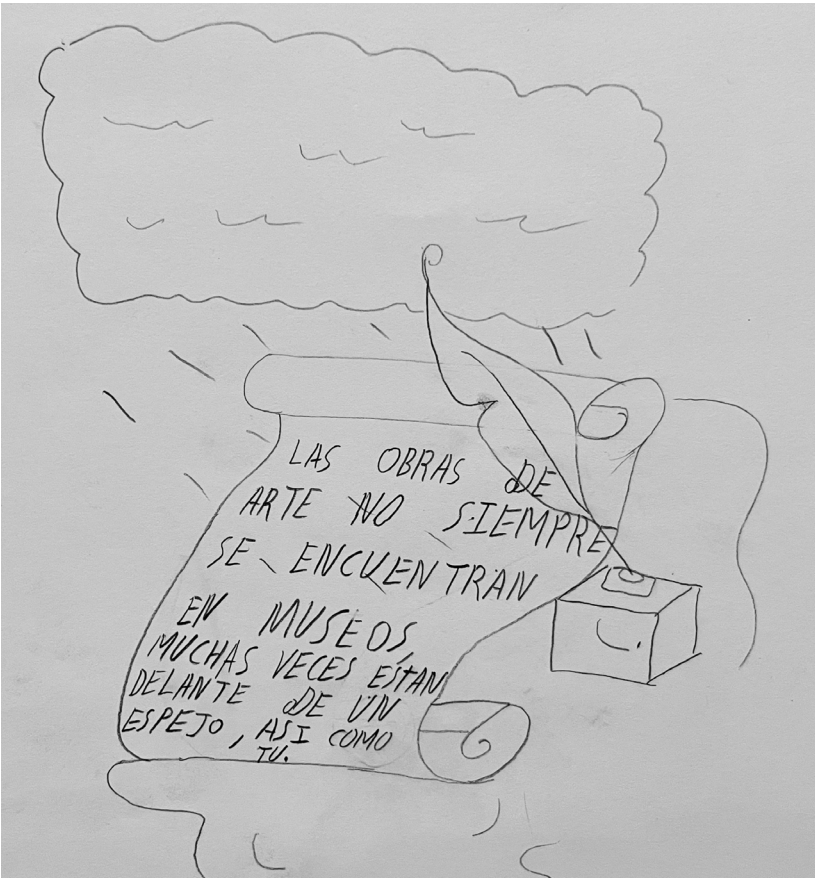 LAS OBRAS DE
ARTE NO SIEMPRE
SE ENCUENTRAN
EN MUSEOS,
MUCHAS VECES ESTAN
DELANTE DE UN
ESPEJO, ASI COMO
TU.